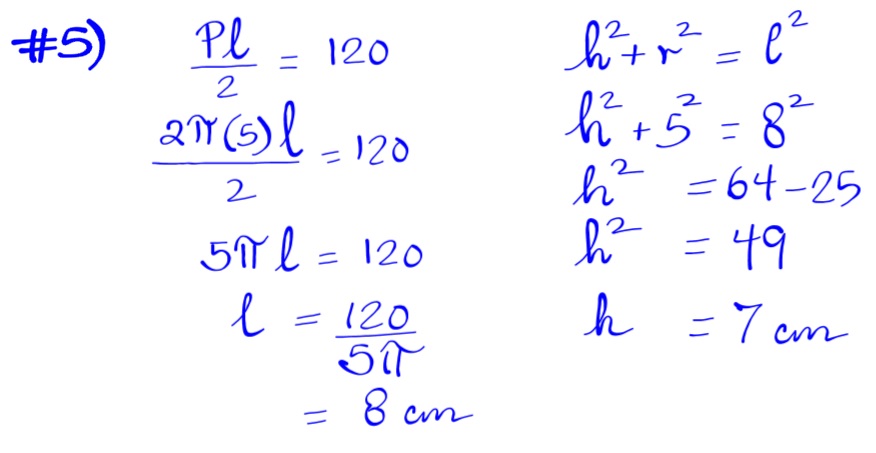 #5) Pl/2 = 120
2π(5)l/2 = 120
5πl = 120
l = 120/5π
= 8 cm
h² + r² = l²
h² + 5² = 8²
h² = 64 - 25
h² = 49
h = 7 cm